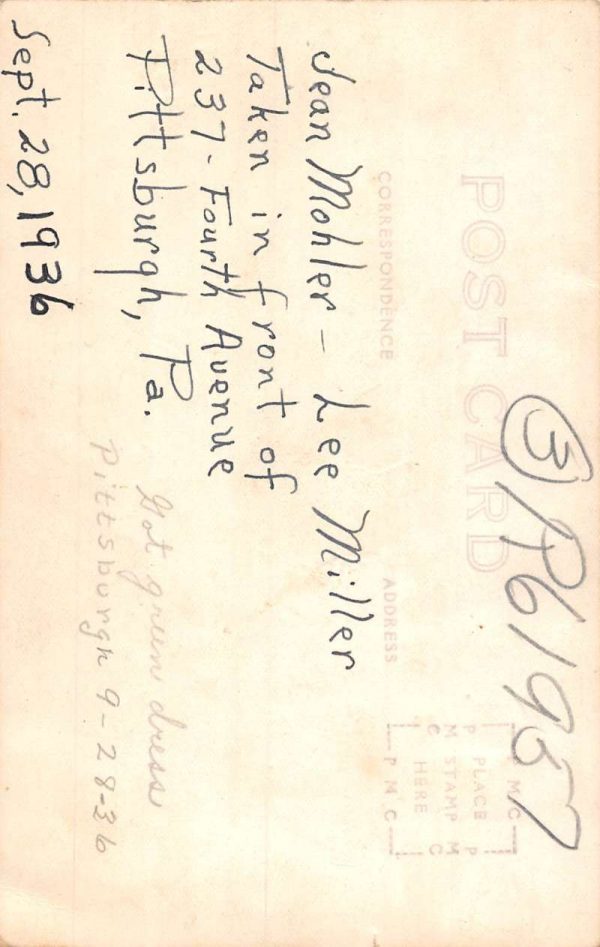 ③ P61957
POST CARD
CORRESPONDENCE
ADDRESS
P M C
P PLACE P
M STAMP M
C HERE C
P M C
Jean Mohler - Lee Miller
Taken in front of
237 - Fourth Avenue
Pittsburgh, Pa.
Sept. 28, 1936
Got green dress
Pittsburgh 9-28-36